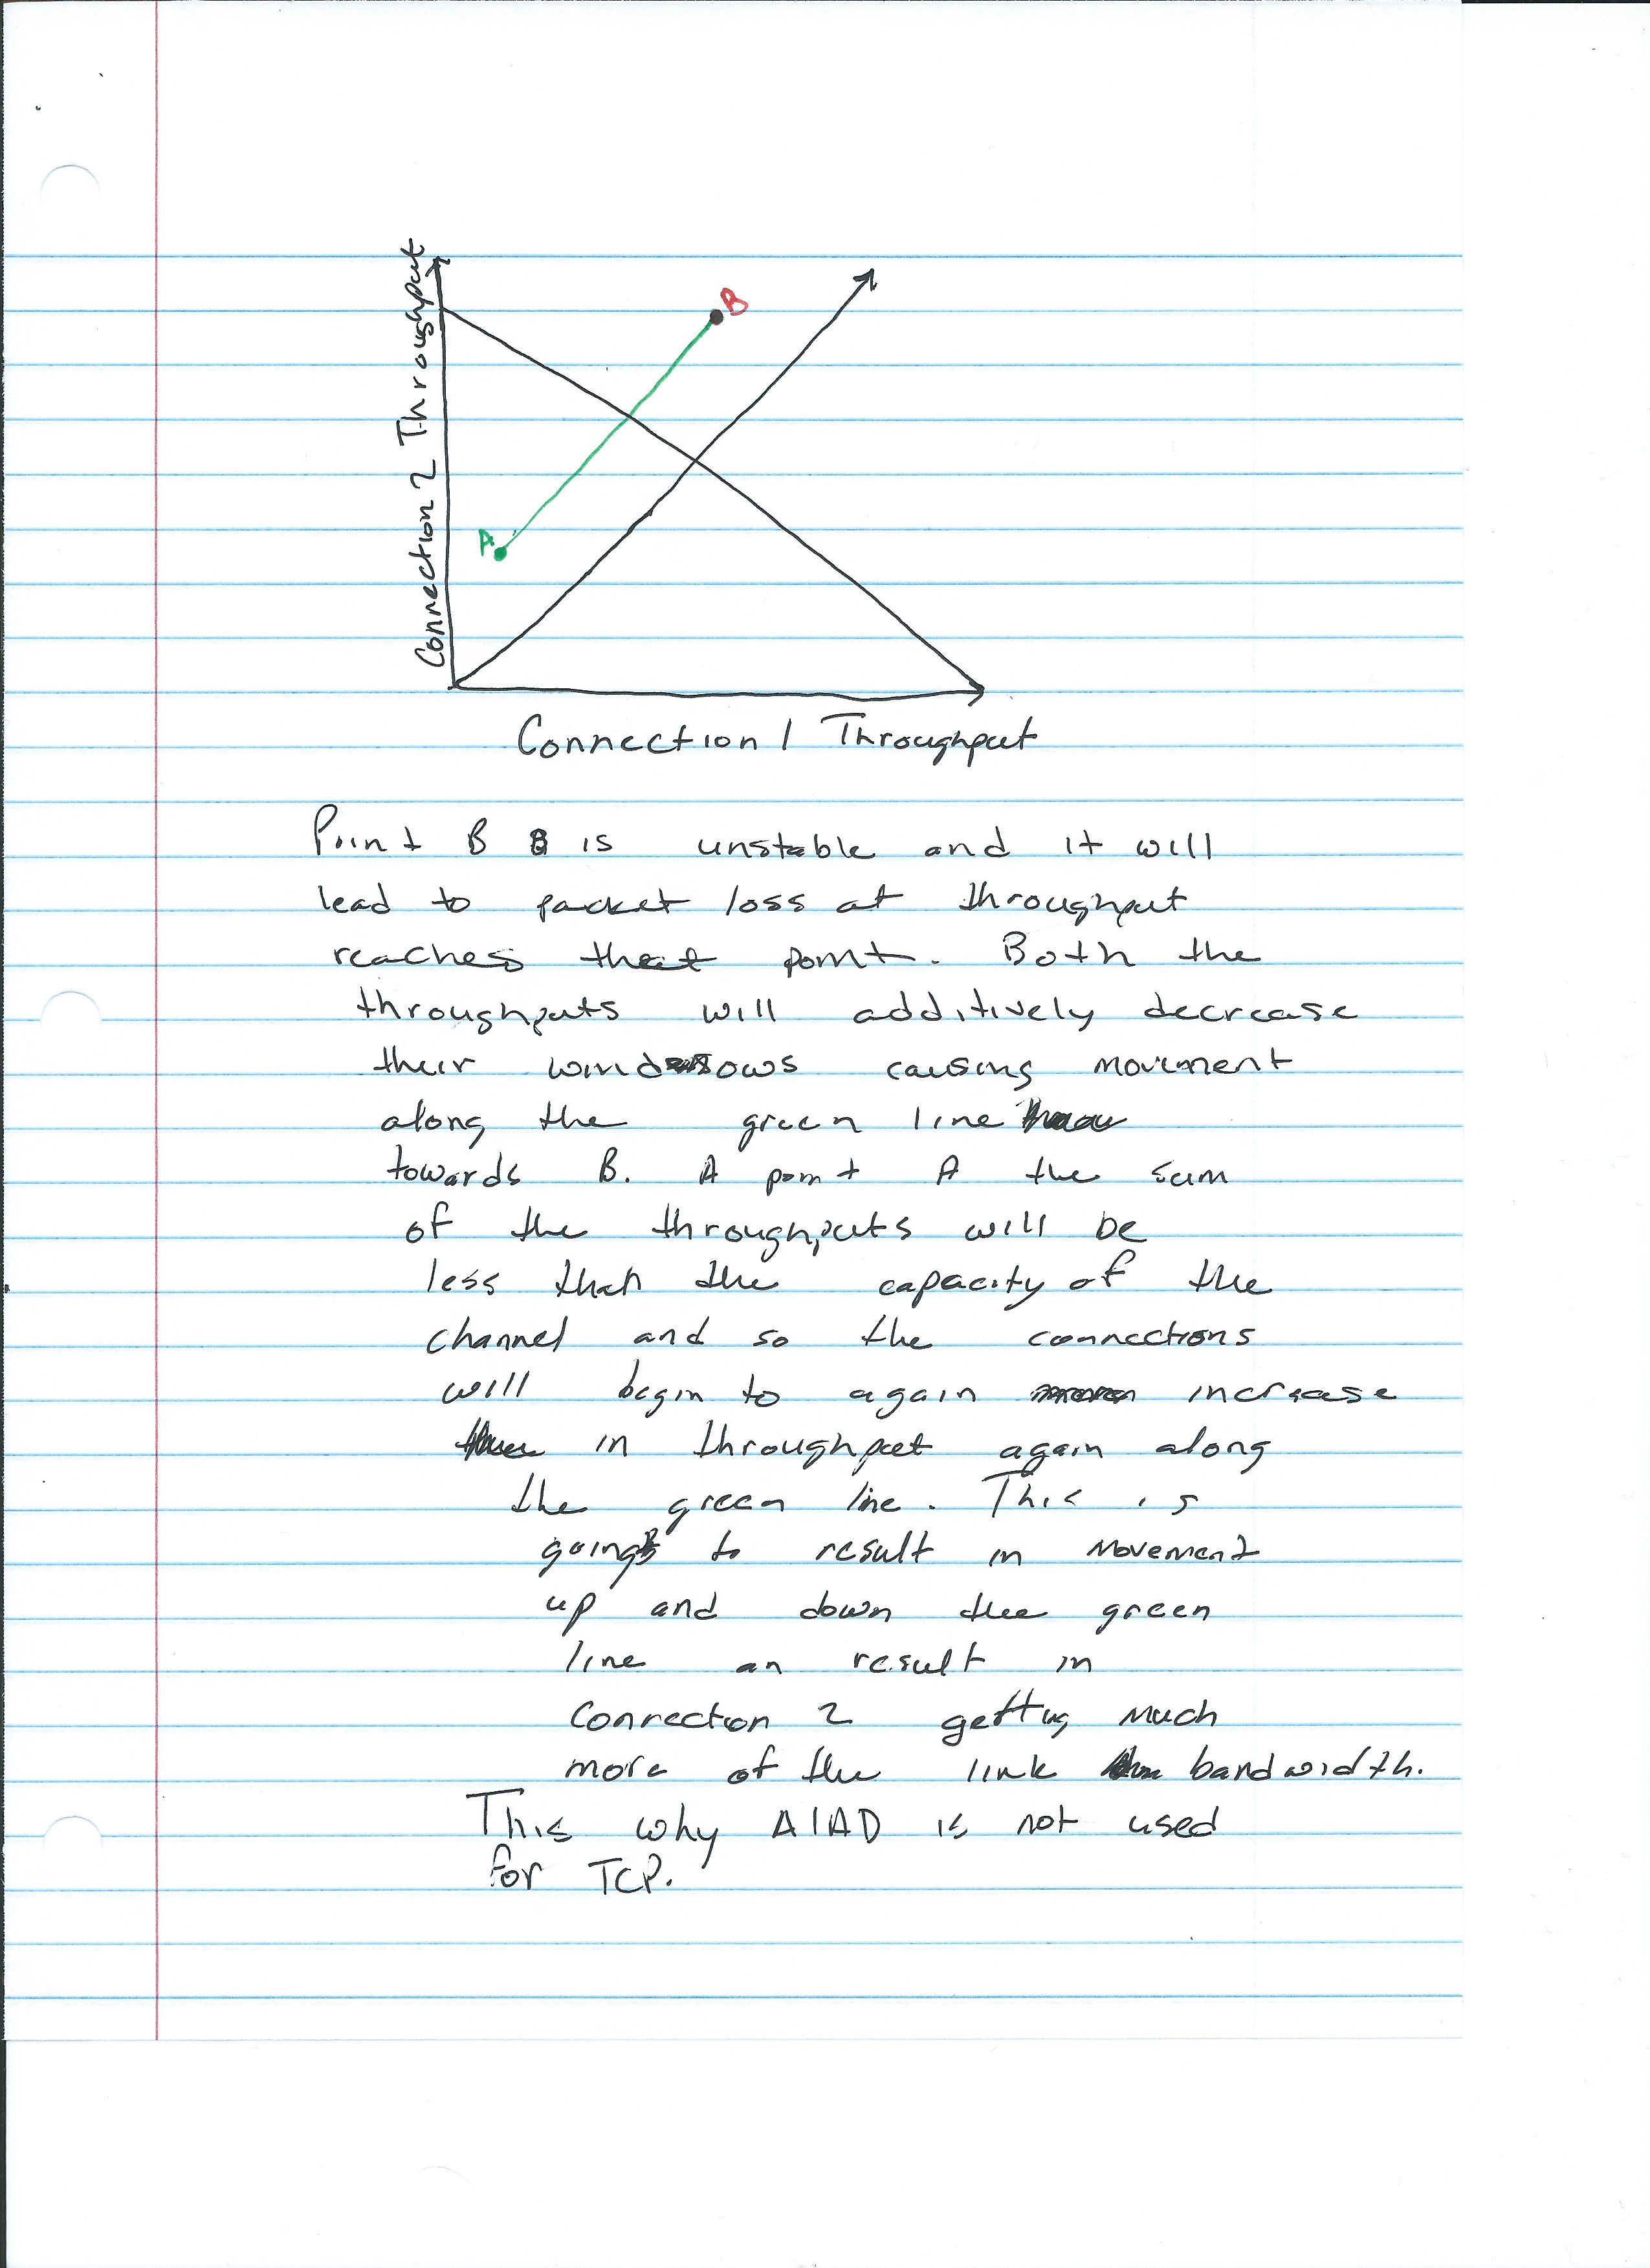 Connection 2 Throughput
B
A
Connection 1 Throughput
Point B is unstable and it will
lead to packet loss at throughput
reaches that point. Both the
throughputs will additively decrease
their windows causing movement
along the green line
towards B. A point A the sum
of the throughputs will be
less than the capacity of the
channel and so the connections
will begin to again increase
in throughput again along
the green line. This is
going to result in movement
up and down the green
line an result in
Connection 2 getting much
more of the link bandwidth.
This why AIAD is not used
for TCP.